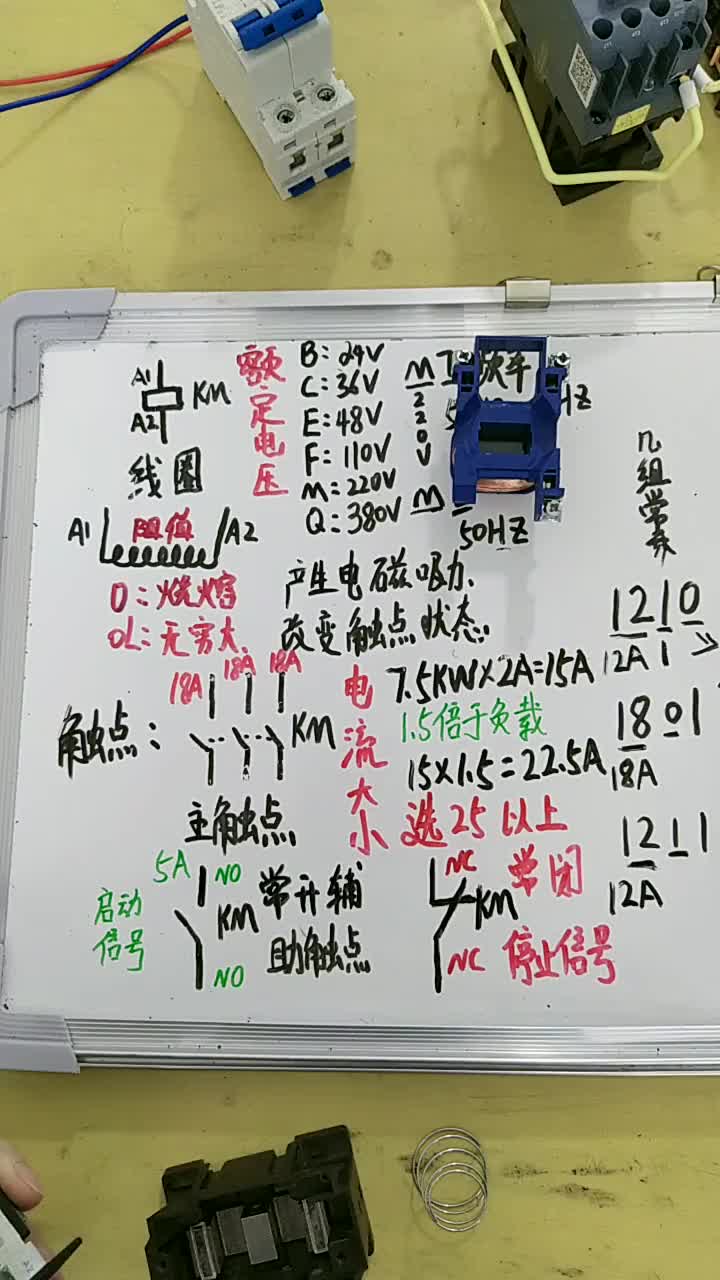 A1
KM
A2
线圈
额定电压
B:24V
C:36V
E:48V
F:110V
M:220V
Q:380V
M
220V
HZ
M
50HZ
A1
阻值
A2
0:烧熔
0L:无穷大
产生电磁吸力.
改变触点状态.
几组常
1210
12A 1
1801
18A
1211
12A
触点:
18A
18A
18A
KM
主触点
电流大小
7.5KW×2A=15A
1.5倍于负载
15×1.5=22.5A
选25以上
启动信号
5A
NO
KM
NO
常开辅
助触点
NC
常闭
KM
NC
停止信号